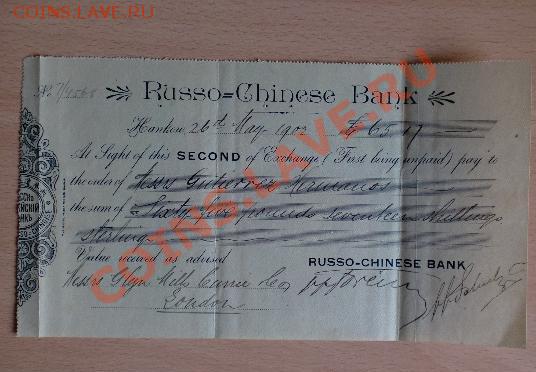 COINS.LAVE.RU
COINS.LAVE.RU
No 7/
Russo=Chinese Bank
Hankow 26th May 1902 £ 65.17
At Sight of this SECOND of Exchange (First being unpaid) pay to
the order of Messrs Gutierrez Hermanos
the sum of Sixty five pounds seventeen Shillings
sterling
Value received as advised
RUSSO-CHINESE BANK
Messrs Glyn Mills Currie & Co
London